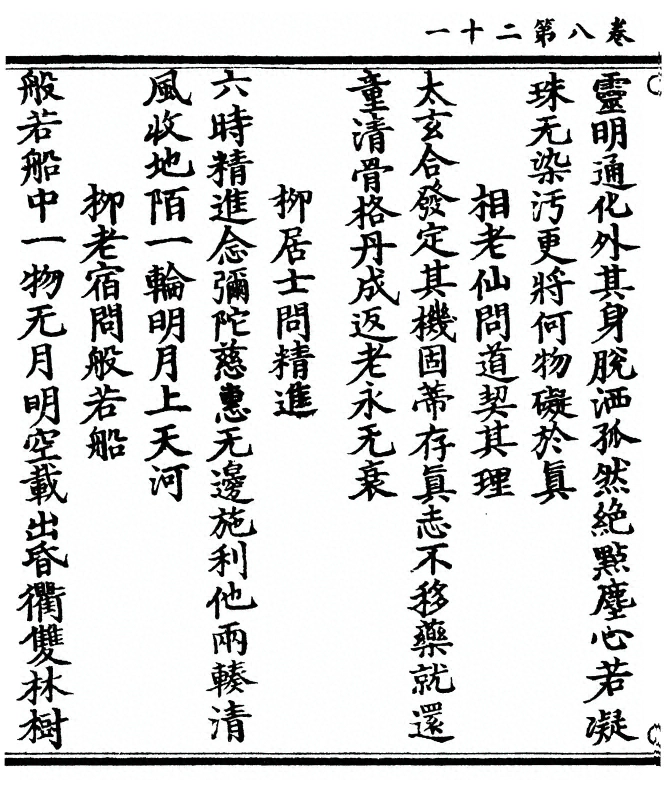 卷八第二十一
靈明通化外其身脫洒孤然絶點塵心若凝
珠无染污更將何物礙於真
相老仙問道契其理
太玄合發定其機固蒂存真志不移藥就還
童清骨格丹成返老永无衰
柳居士問精進
六時精進念彌陀慈惠无邊施利他兩轃清
風收地陌一輪明月上天河
柳老宿問般若船
般若船中一物无月明空載出昏衢雙林樹